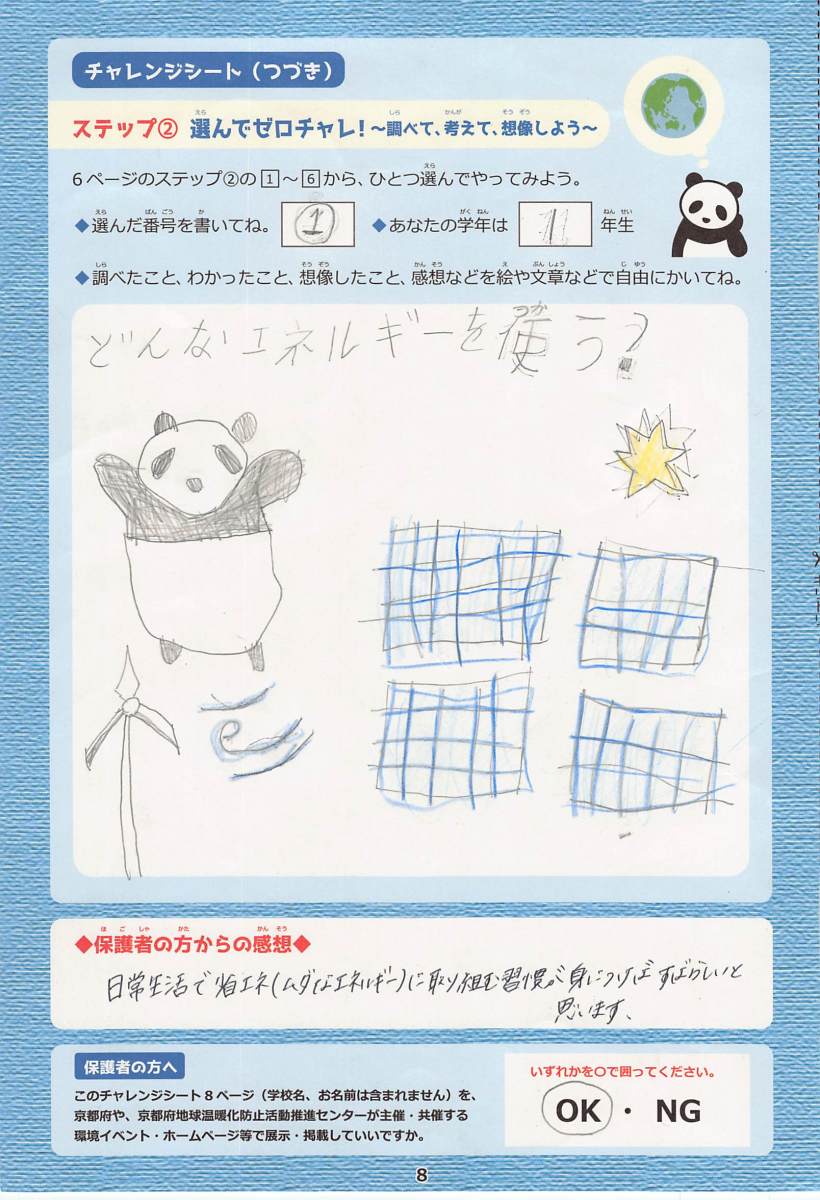 チャレンジシート（つづき）
ステップ② 選んでゼロチャレ！～調べて、考えて、想像しよう～
6ページのステップ②の1～6から、ひとつ選んでやってみよう。
◆選んだ番号を書いてね。 ① ◆あなたの学年は 年生
◆調べたこと、わかったこと、想像したこと、感想などを絵や文章などで自由にかいてね。
どんなエネルギーを使う?
◆保護者の方からの感想◆
日常生活で省エネ(ムダなエネルギー)に取り組む習慣が身につけばすばらしいと
思います、
保護者の方へ
このチャレンジシート8ページ（学校名、お名前は含まれません）を、
京都府や、京都府地球温暖化防止活動推進センターが主催・共催する
環境イベント・ホームページ等で展示・掲載していいですか。
いずれかを○で囲ってください。
OK ・ NG
8